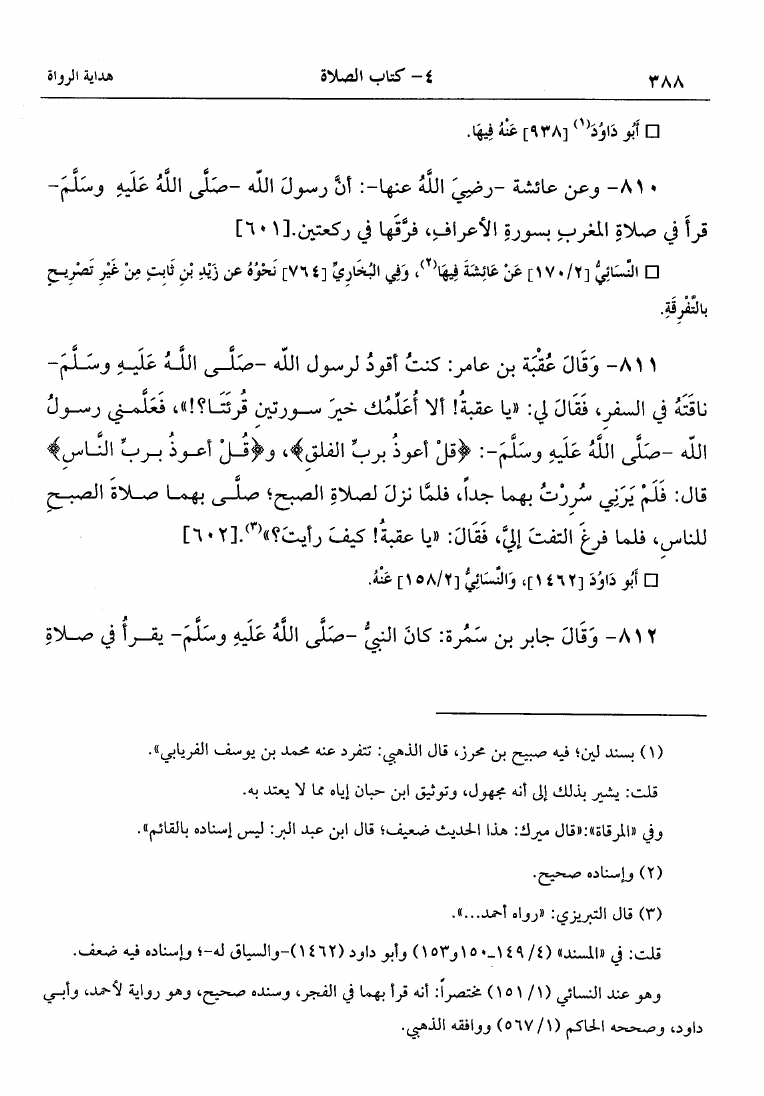 ٣٨٨ ٤- كتاب الصلاة هداية الرواة
□ أَبُو دَاوُدَ(١) [٩٣٨] عَنْهُ فِيهَا.
٨١٠- وعن عائشة -رضِيَ اللَّهُ عنها-: أنَّ رسولَ الله -صَلَّى اللَّهُ عَلَيهِ وسَلَّمَ-
قرأ في صلاةِ المغربِ بسورةِ الأعرافِ، فرَّقَها في ركعتين.[٦٠١]
□ النَّسَائِيُّ [١٧٠/٢] عَنْ عَائِشَةَ فِيهَا(٢)، وَفِي البُخَارِيِّ [٧٦٤] نَحْوُهُ عن زَيْدِ بْنِ ثَابِتٍ مِنْ غَيْرِ تَصْرِيحٍ
بالتَّفْرِقَةِ.
٨١١- وَقَالَ عُقْبَة بن عامر: كنتُ أقودُ لرسول الله -صَلَّى اللَّهُ عَلَيهِ وسَلَّمَ-
ناقتَهُ في السفرِ، فَقَالَ لي: «يا عقبةُ! ألا أُعَلِّمُك خيرَ سورتينِ قُرِئَتَا؟!»، فَعَلَّمني رسولُ
الله -صَلَّى اللَّهُ عَلَيهِ وسَلَّمَ-: ﴿قلْ أعوذُ بربِّ الفلق﴾، و﴿قُلْ أعوذُ بربِّ النَّاسِ﴾
قال: فَلَمْ يَرَنِي سُرِرْتُ بهما جداً، فلمَّا نزلَ لصلاةِ الصبحِ؛ صلَّى بهما صلاةَ الصبحِ
للناسِ، فلما فرغَ التفتَ إليَّ، فَقَالَ: «يا عقبةُ! كيفَ رأيتَ؟»(٣).[٦٠٢]
□ أَبُو دَاوُدَ [١٤٦٢]، وَالنَّسَائِيُّ [١٥٨/٢] عَنْهُ.
٨١٢- وَقَالَ جابر بن سَمُرة: كانَ النبيُّ -صَلَّى اللَّهُ عَلَيهِ وسَلَّمَ- يقرأُ في صلاةِ
(١) بسند لين؛ فيه صبيح بن محرز، قال الذهبي: تتفرد عنه محمد بن يوسف الفريابي».
قلت: يشير بذلك إلى أنه مجهول، وتوثيق ابن حبان إياه مما لا يعتد به.
وفي «المرقاة»:«قال ميرك: هذا الحديث ضعيف؛ قال ابن عبد البر: ليس إسناده بالقائم».
(٢) وإسناده صحيح.
(٣) قال التبريزي: «رواه أحمد...».
قلت: في «المسند» (٤/ ١٤٩ـ١٥٠و١٥٣) وأبو داود (١٤٦٢)-والسياق له-؛ وإسناده فيه ضعف.
وهو عند النسائي (١/ ١٥١) مختصراً: أنه قرأ بهما في الفجر، وسنده صحيح، وهو رواية لأحمد، وأبي
داود، وصححه الحاكم (١/ ٥٦٧) ووافقه الذهبي.